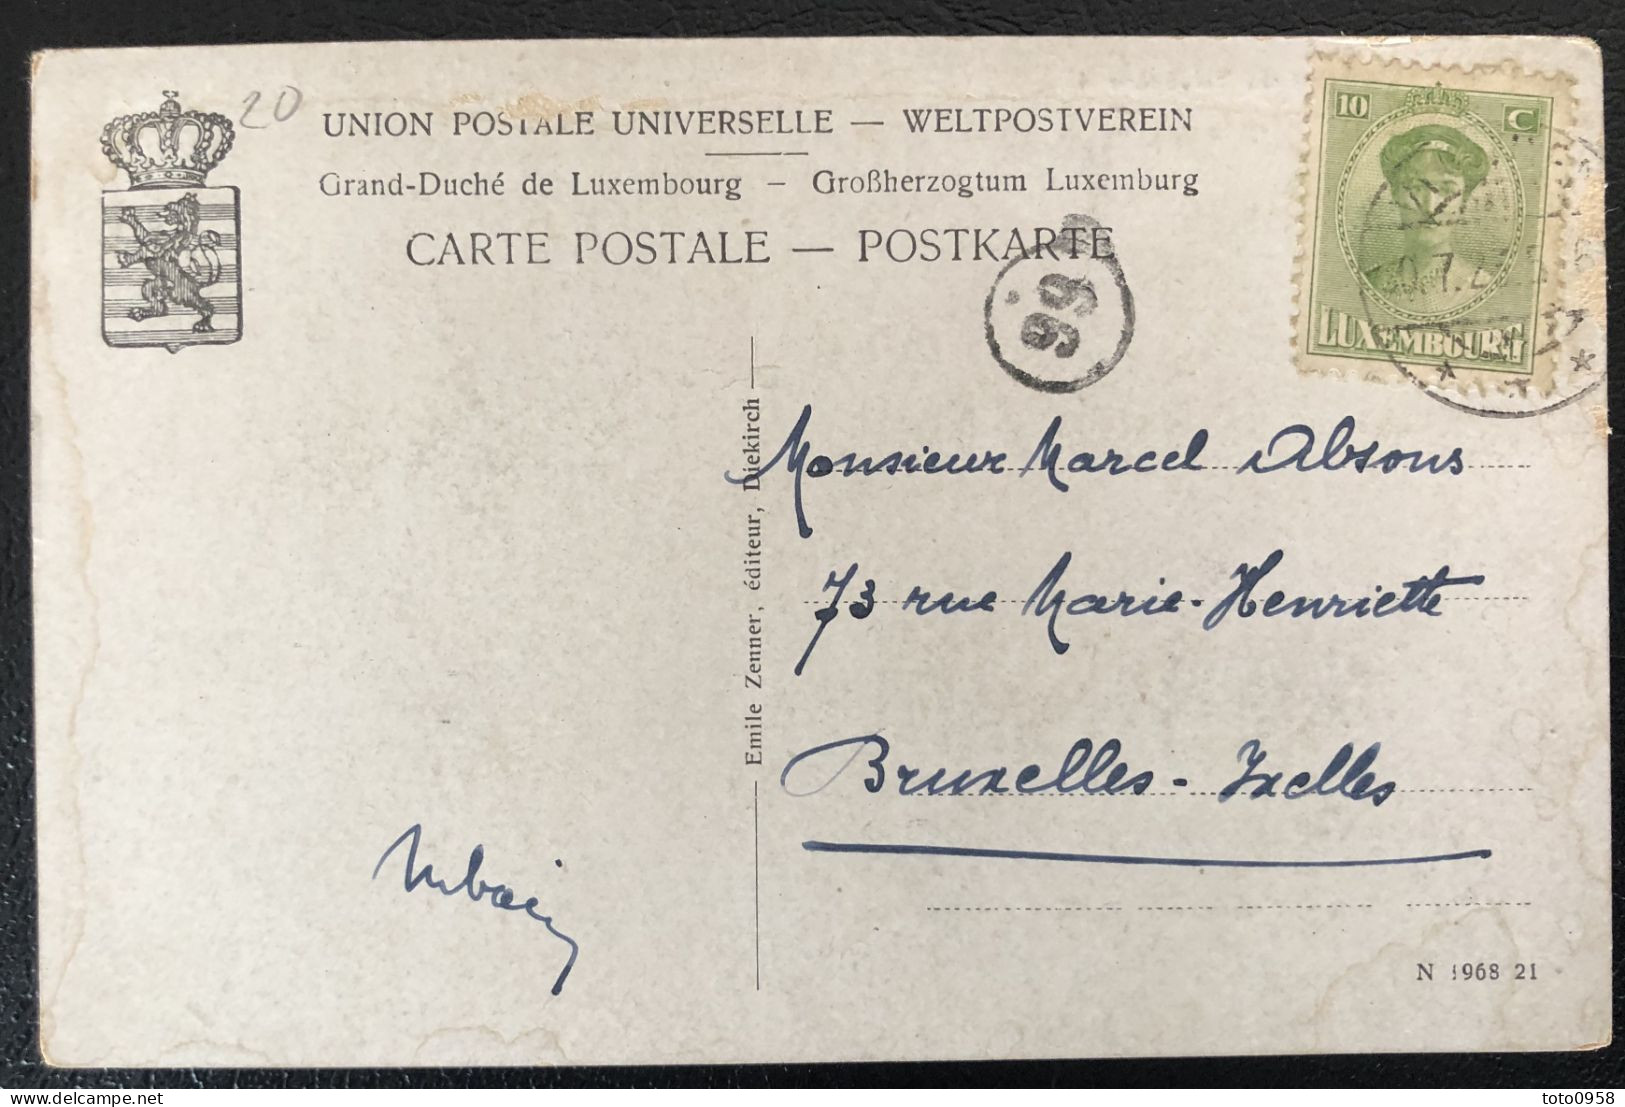 20
UNION POSTALE UNIVERSELLE — WELTPOSTVEREIN
Grand-Duché de Luxembourg – Großherzogtum Luxemburg
CARTE POSTALE — POSTKARTE
10 C
LUXEMBOURG
Emile Zenner, éditeur, Diekirch
Monsieur Marcel Absous
73 rue Marie-Henriette
Bruxelles - Ixelles
N 1968 21
toto0958